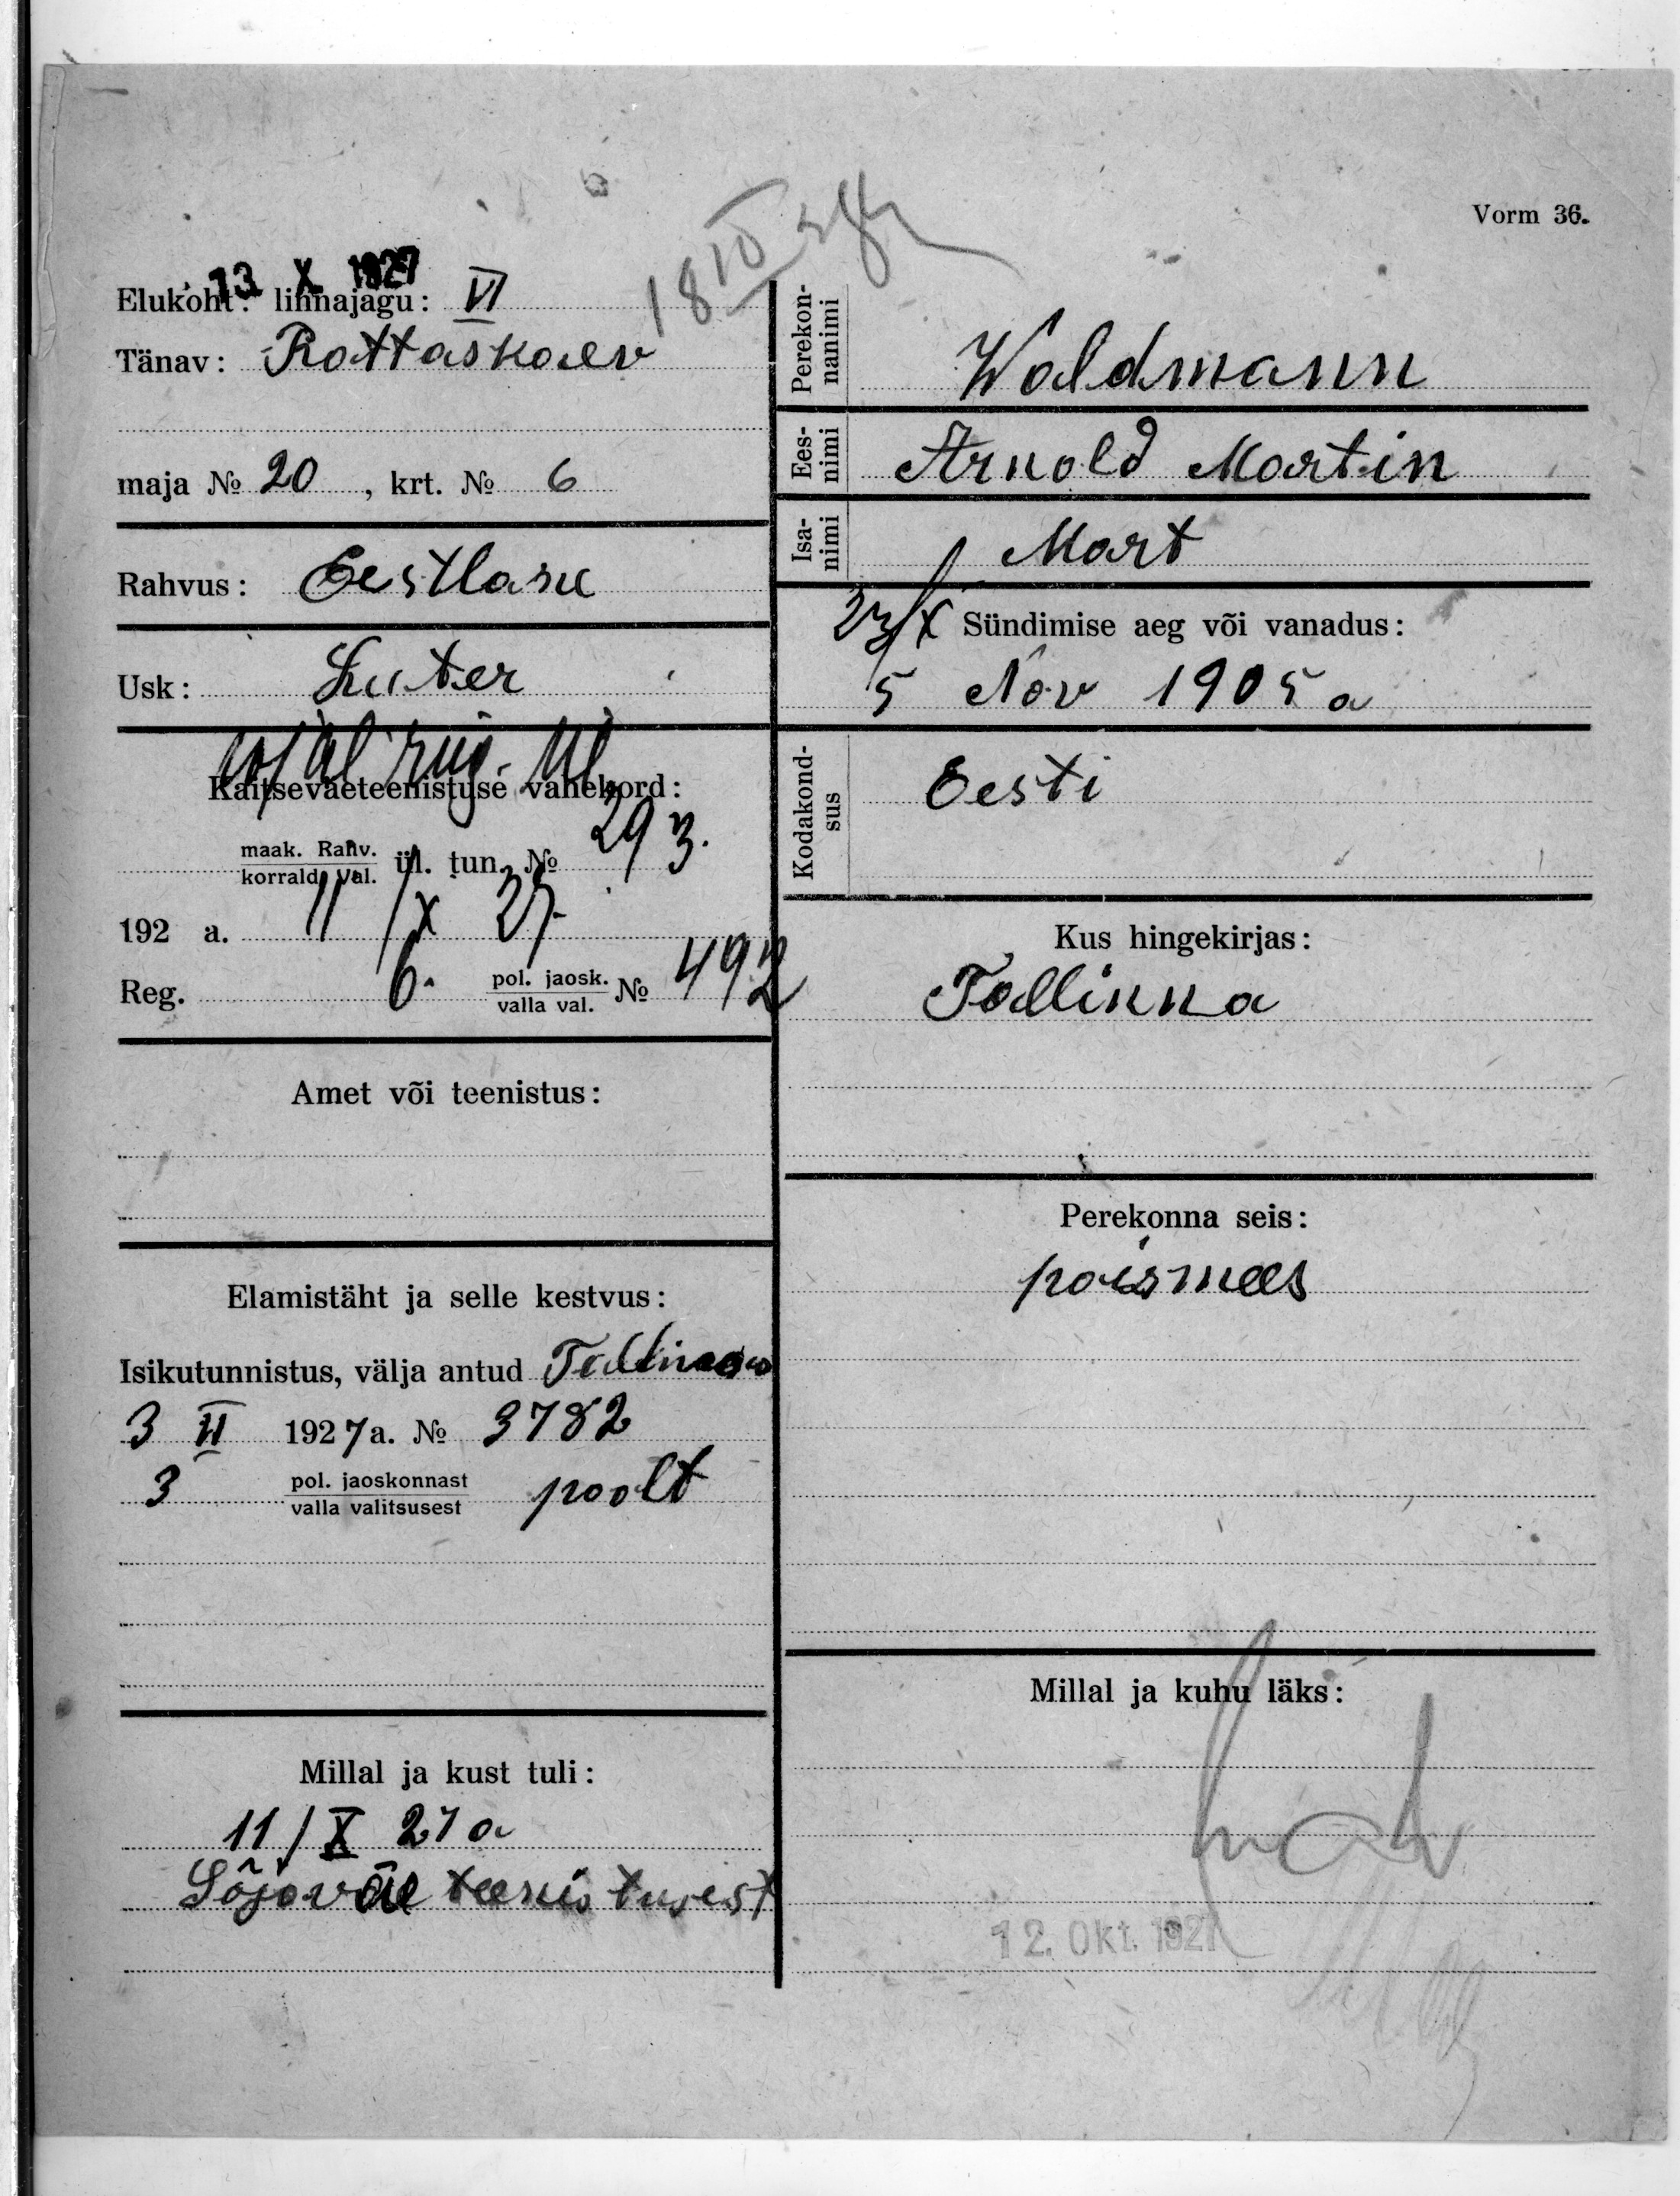 Vorm 36.
13 X 1927
Elukoht: linnajagu: VI
Tänav: Rattaskaev
maja № 20, krt. № 6
Rahvus: Eestlane
Usk: Luter
Kaitseväeteenistuse vahekord:
maak. Rahv.
korrald. Val. ül. tun. № 293.
192 a. 11/X 27.
Reg. 6. pol. jaosk.
valla val. № 492
Amet või teenistus:
Elamistäht ja selle kestvus:
Isikutunnistus, välja antud Tallinnas
3 VI 1927 a. № 3782
3 pol. jaoskonnast
valla valitsusest poolt
Millal ja kust tuli:
11/X 27 a
Sõjaväe teenistusest
18 IV
Perekon-
nanimi Waldmann
Ees-
nimi Arnold Martin
Isa-
nimi Mart
23/X Sündimise aeg või vanadus:
5 Nov 1905 a
Kodakond-
sus Eesti
Kus hingekirjas:
Tallinna
Perekonna seis:
poismees
Millal ja kuhu läks:
12. Okt. 192